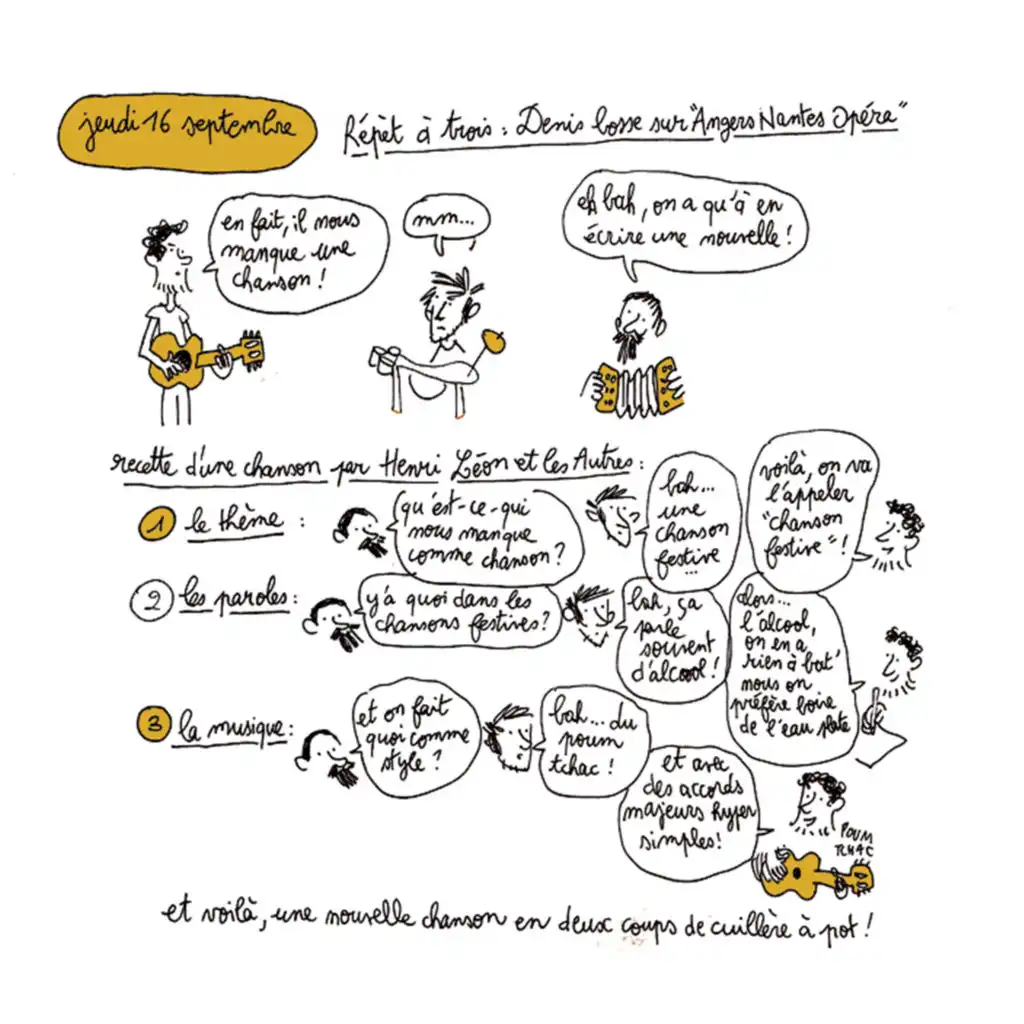 jeudi 16 septembre
Répèt à trois : Denis bosse sur "Angers Nantes Opéra"
en fait, il nous
manque une
chanson !
mm...
eh bah, on a qu'à en
écrire une nouvelle !
recette d'une chanson par Henri Léon et les Autres :
1 le thème :
qu'est-ce-qui
nous manque
comme chanson ?
bah...
une
chanson
festive
...
voilà, on va
l'appeler
"chanson
festive" !
2 les paroles :
y'a quoi dans les
chansons festives ?
bah, ça
parle
souvent
d'alcool !
alors...
l'alcool,
on en a
rien à bat'
nous on
préfère boire
de l'eau plate
3 la musique :
et on fait
quoi comme
style ?
bah... du
poum
tchac !
et avec
des accords
majeurs hyper
simples !
POUM
TCHAC
et voilà, une nouvelle chanson en deux coups de cuillère à pot !